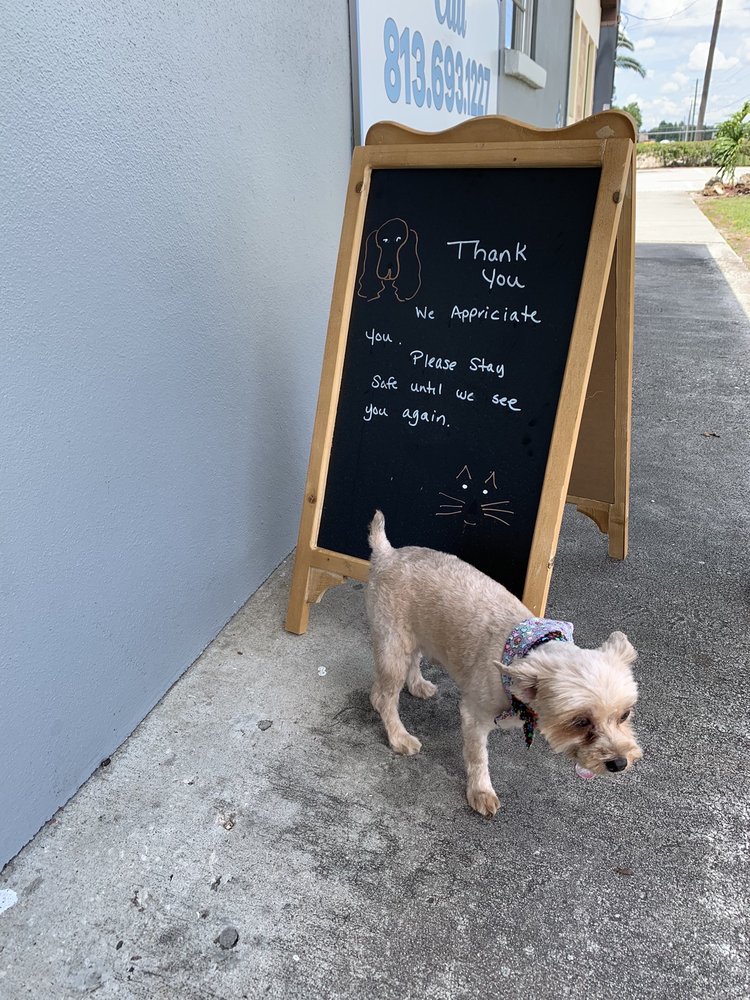 Call
813.693.1227
Thank
You
We Appriciate
you.
Please Stay
Safe until we see
you again.